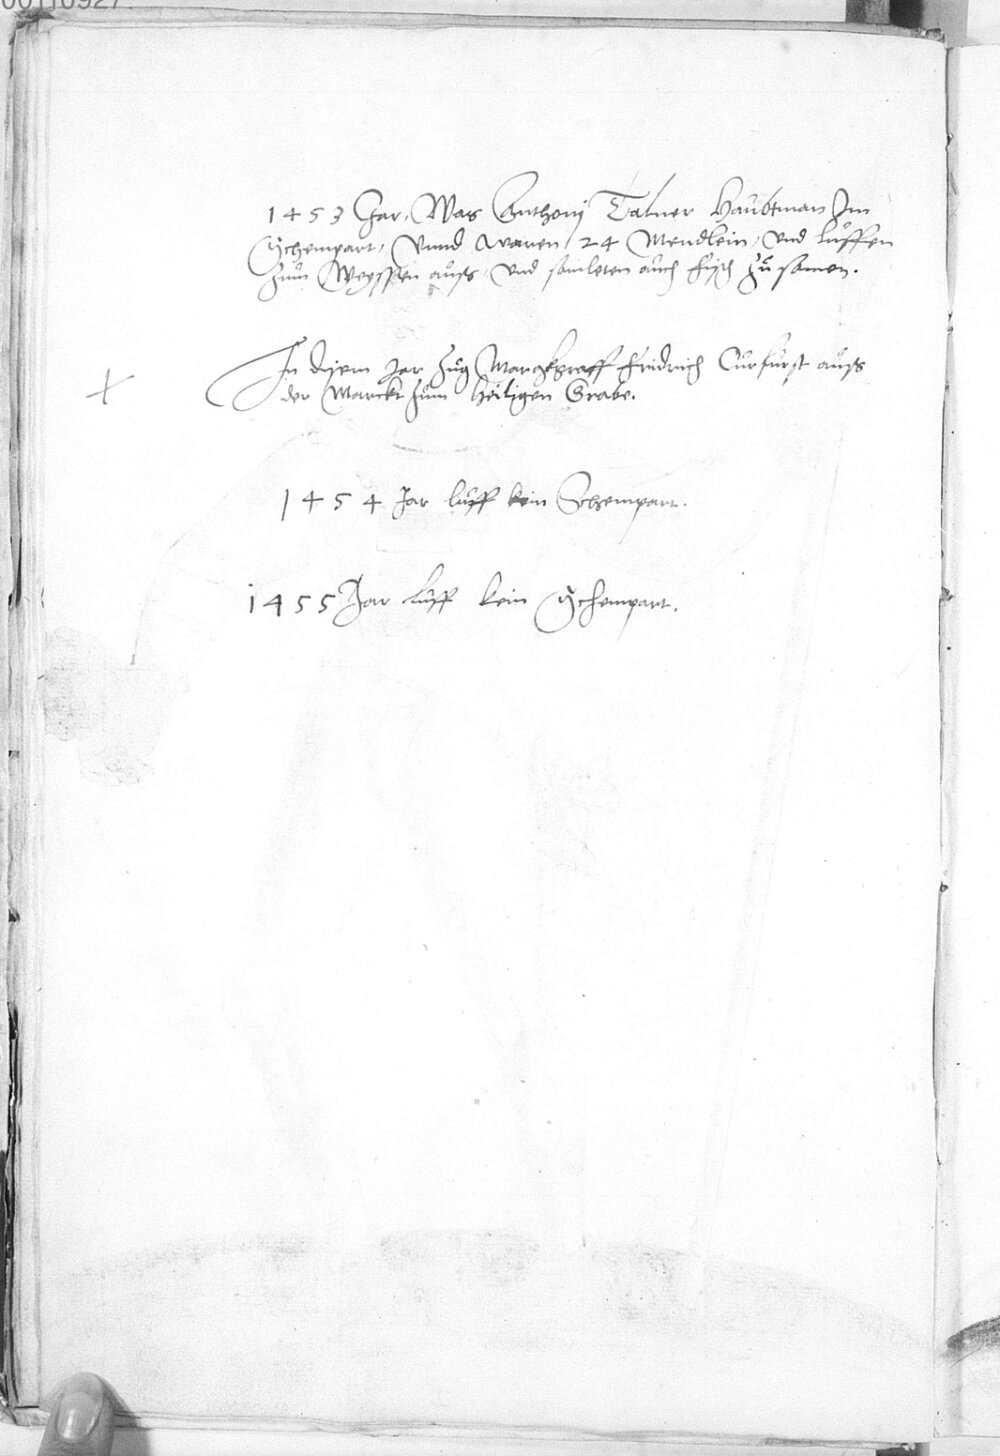 00110927
1453 Jar, Was Anthonj Talner Haubtman Im
Schempart, Vnnd waren 24 Mendlein, vnd luffen
zum Weyssen auß, vnd samleten auch sich zu samen.
In disem Jar zug Marckgraff Fridrich Curfurst auß
der Marckt zum heiligen Grabe.
1454 Jar luff kein Schempart.
1455 Jar luff kein Schempart.